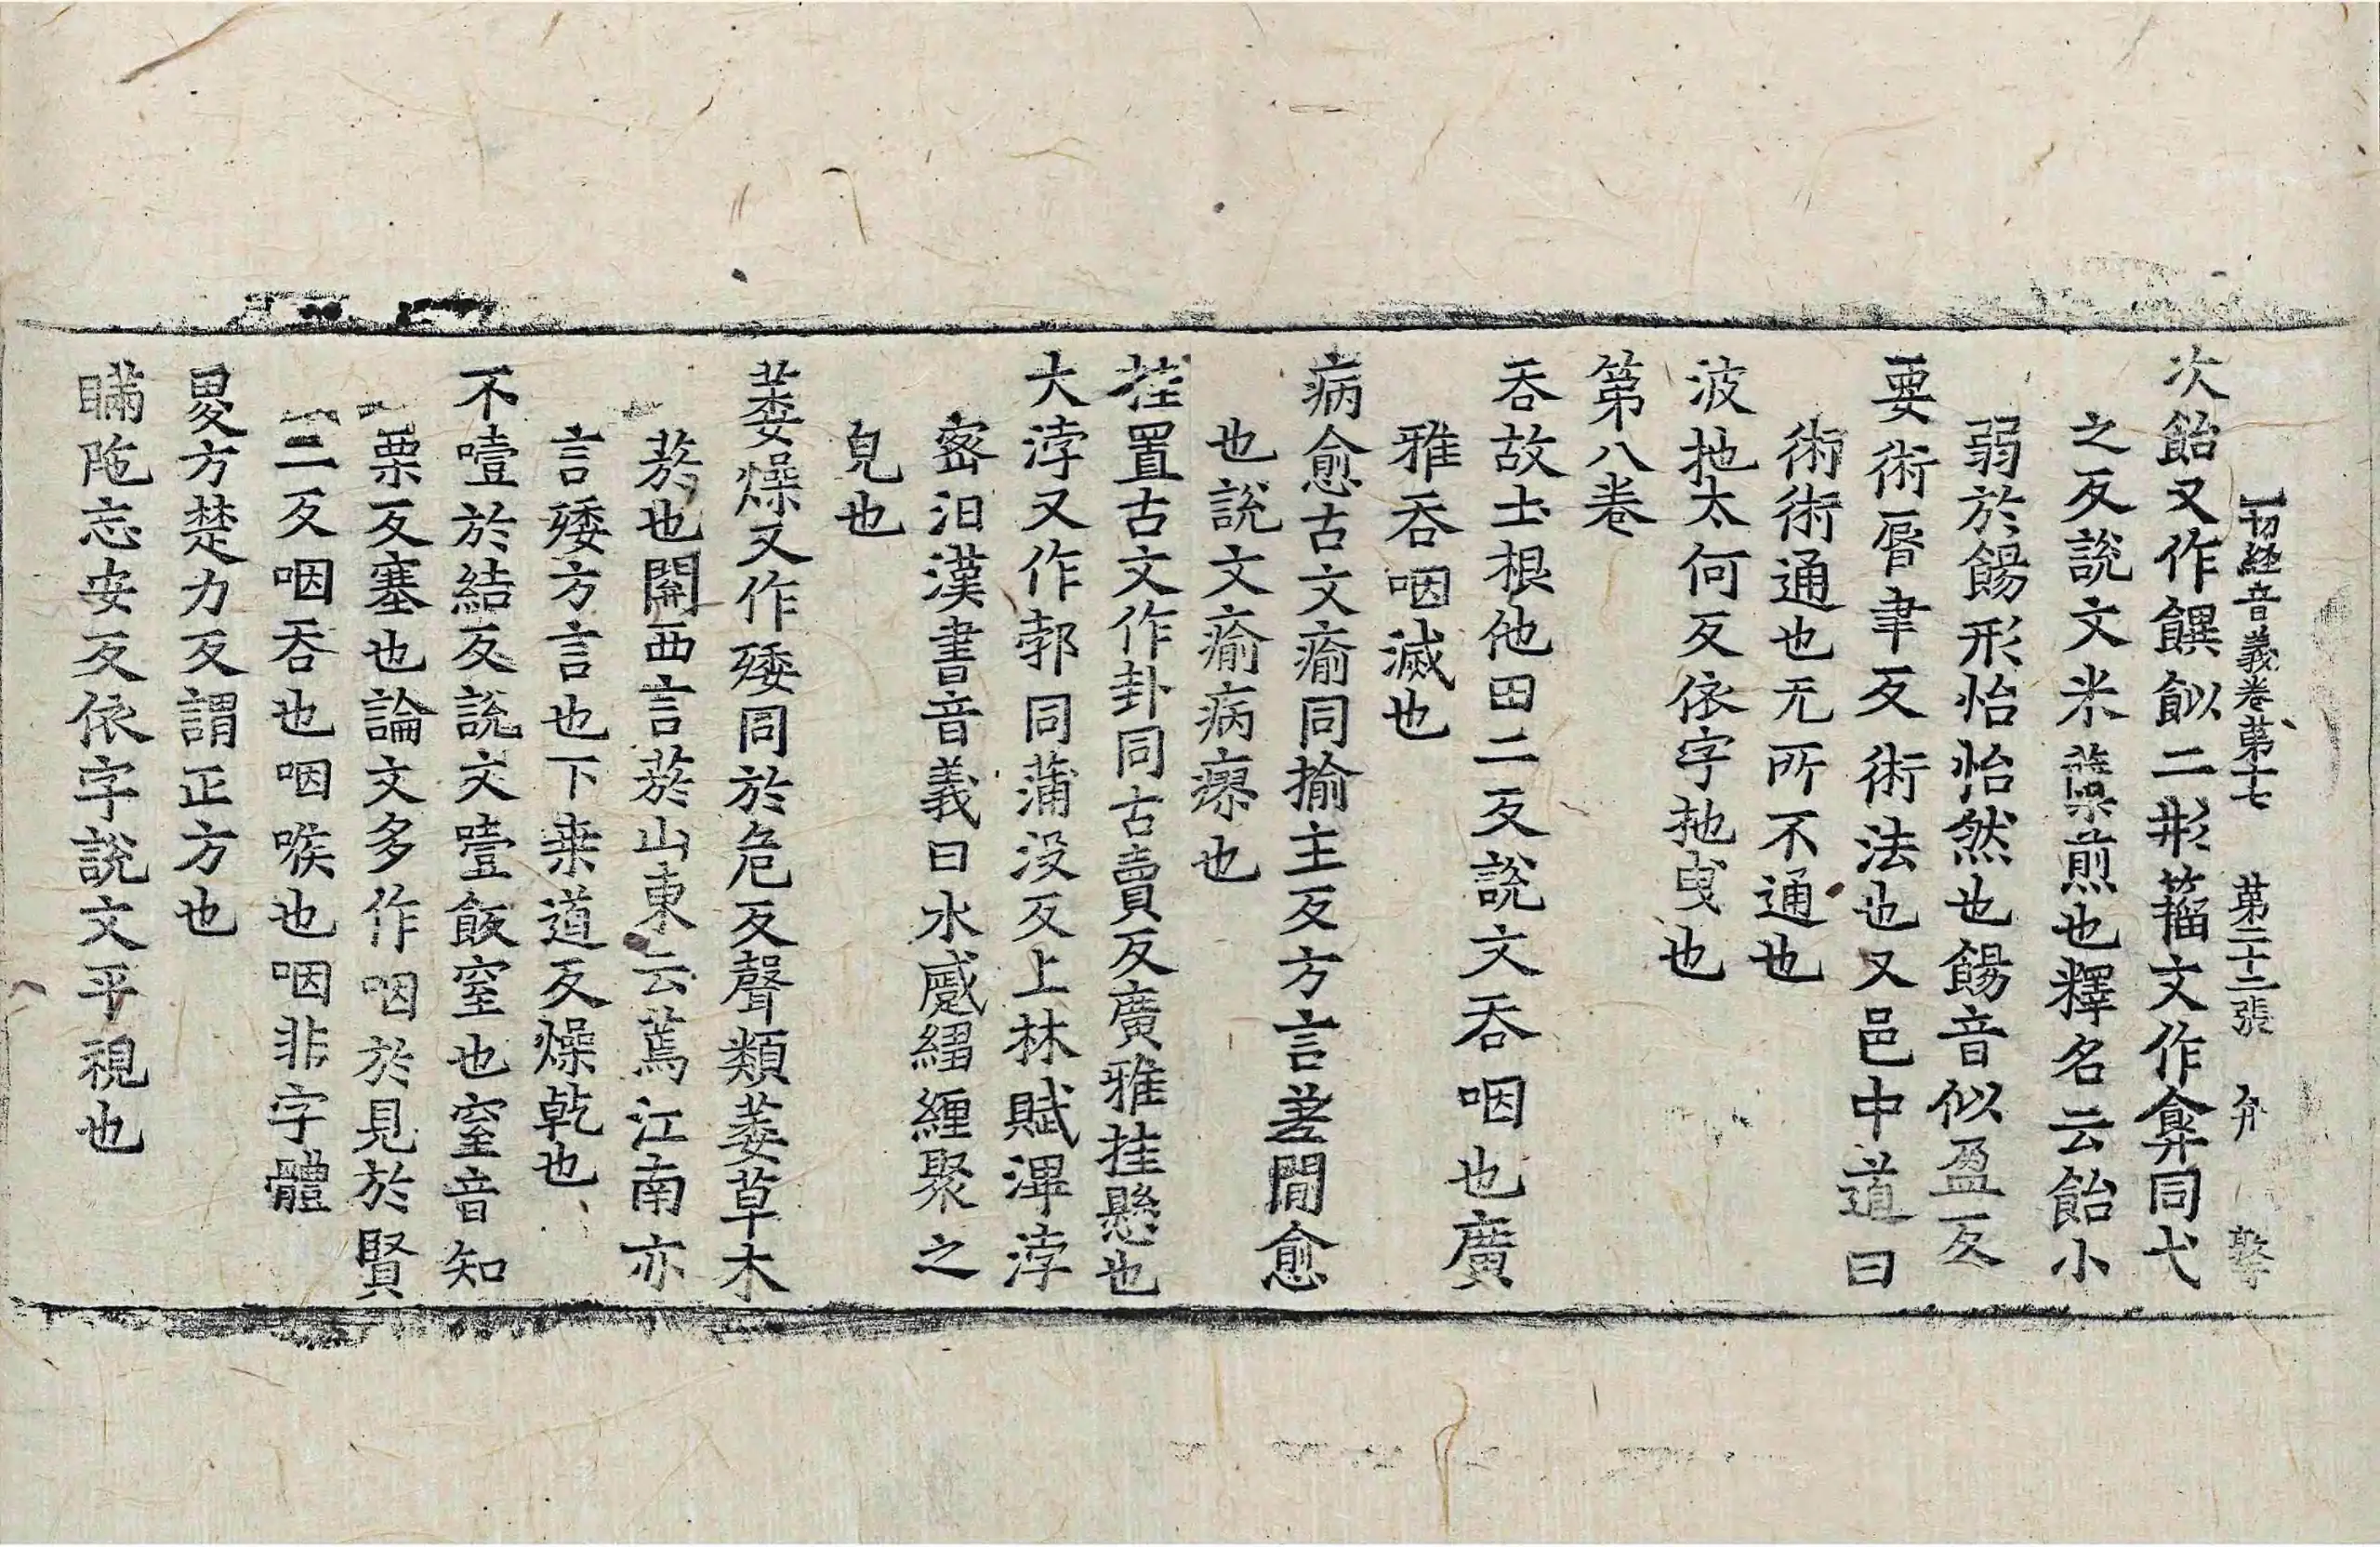 一切經音義卷第十七 第二十二張 弁
次飴又作䬾䬮二形籀文作弇同弋
之反説文米糱煎也釋名云飴小
弱於餳形怡怡然也餳音似盈反
要術脣聿反術法也又邑中道曰
術術通也无所不通也
波扡太何反依字扡曳也
第八卷
吞故土根他田二反說文吞咽也廣
雅吞咽滅也
病愈古文瘉同揄主反方言差間愈
也說文瘉病瘳也
挂置古文作卦同古賣反廣雅挂懸也
大浡又作郣同蒲没反上林賦滭浡
宻汨漢書音義曰水蹙縎纏聚之
皃也
萎燥又作矮同於危反聲類萎草木
菸也關西言菸山東云蔫江南亦
言矮方言也下桒道反燥乾也
不噎於結反説文噎飯窒也窒音知
栗反塞也論文多作咽於見於賢
二反咽吞也咽喉也咽非字體
畟方楚力反謂正方也
瞞陁忘安反依字説文平視也